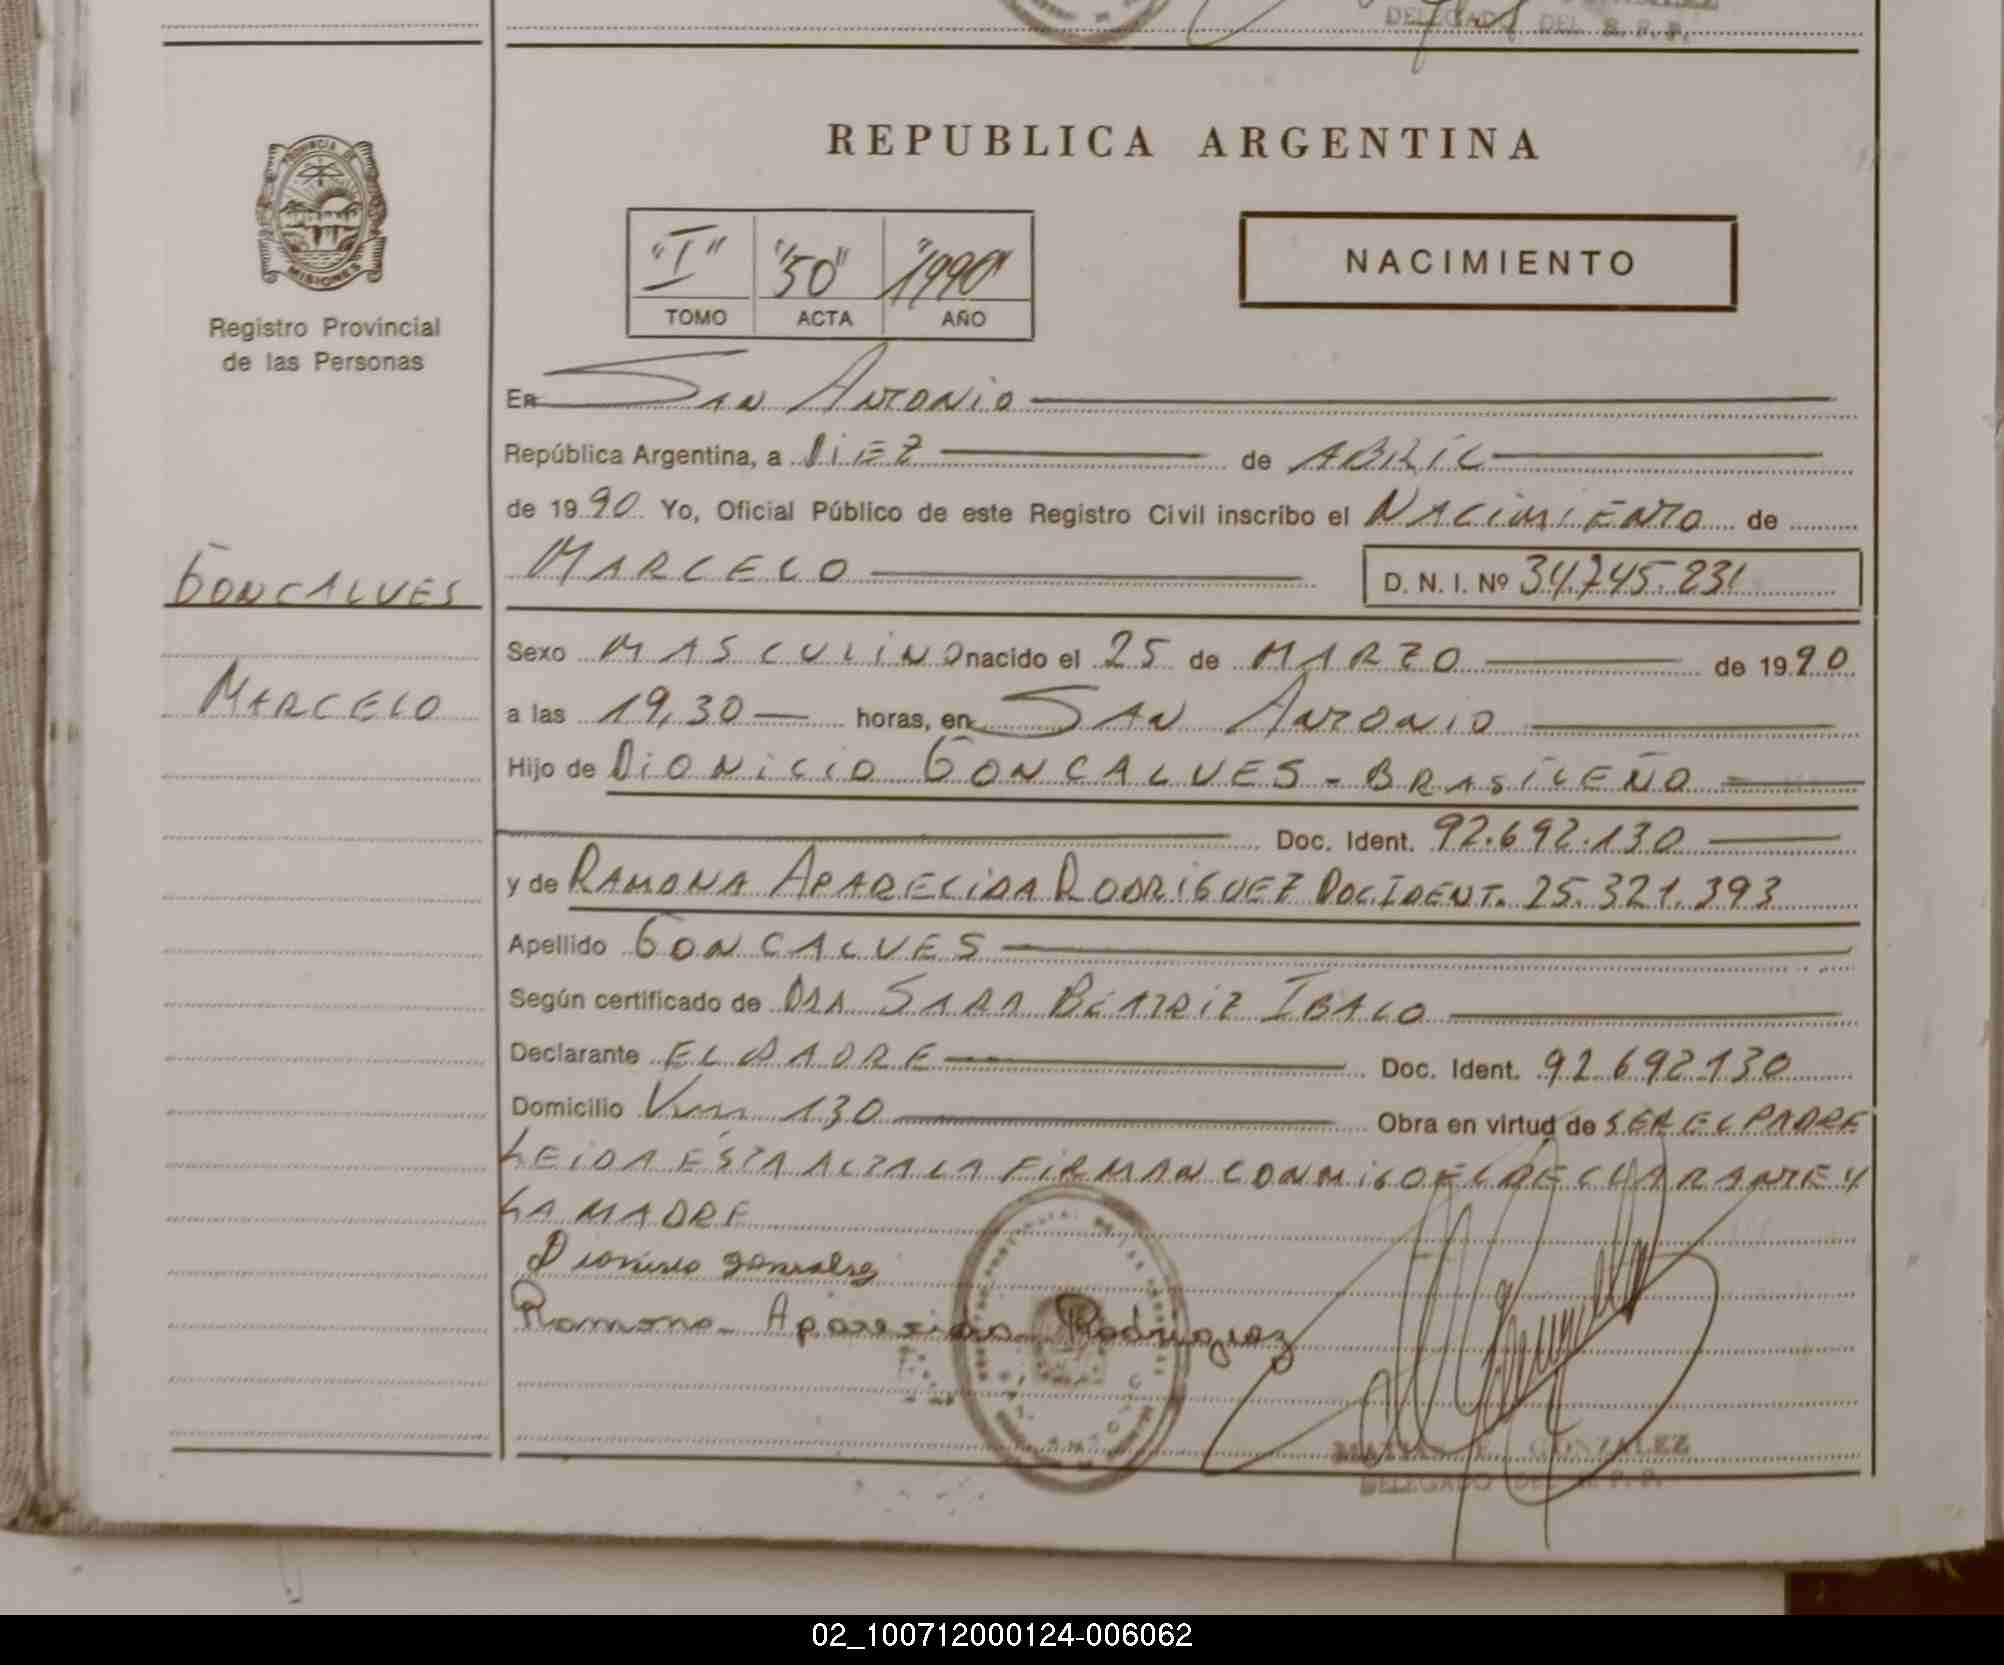 DELEGADO DEL R. P. P.
PROVINCIA DE
MISIONES
Registro Provincial
de las Personas
REPUBLICA ARGENTINA
"I" "50" "1990"
TOMO ACTA AÑO
NACIMIENTO
En SAN ANTONIO
República Argentina, a DIEZ de ABRIL
de 1990 Yo, Oficial Público de este Registro Civil inscribo el NACIMIENTO de
GONCALVES MARCELO D. N. I. Nº 34.745.231
Sexo MASCULINO nacido el 25 de MARZO de 1990
MARCELO a las 19,30 horas, en SAN ANTONIO
Hijo de DIONICIO GONCALVES - BRASILEÑO
Doc. Ident. 92.692.130
y de RAMONA APARECIDA RODRIGUEZ DOC IDENT. 25.321.393
Apellido GONCALVES
Según certificado de DRA SARA BEATRIZ IBALO
Declarante EL PADRE Doc. Ident. 92692130
Domicilio Km 130 Obra en virtud de SER EL PADRE
LEIDA ESTA ACTA LA FIRMAN CONMIGO EL DECLARANTE Y
LA MADRE
Dionisio gonsalves
Ramona Aparesida Rodriguez
GONZALEZ
DELEGADO DEL R. P. P.
02_100712000124-006062